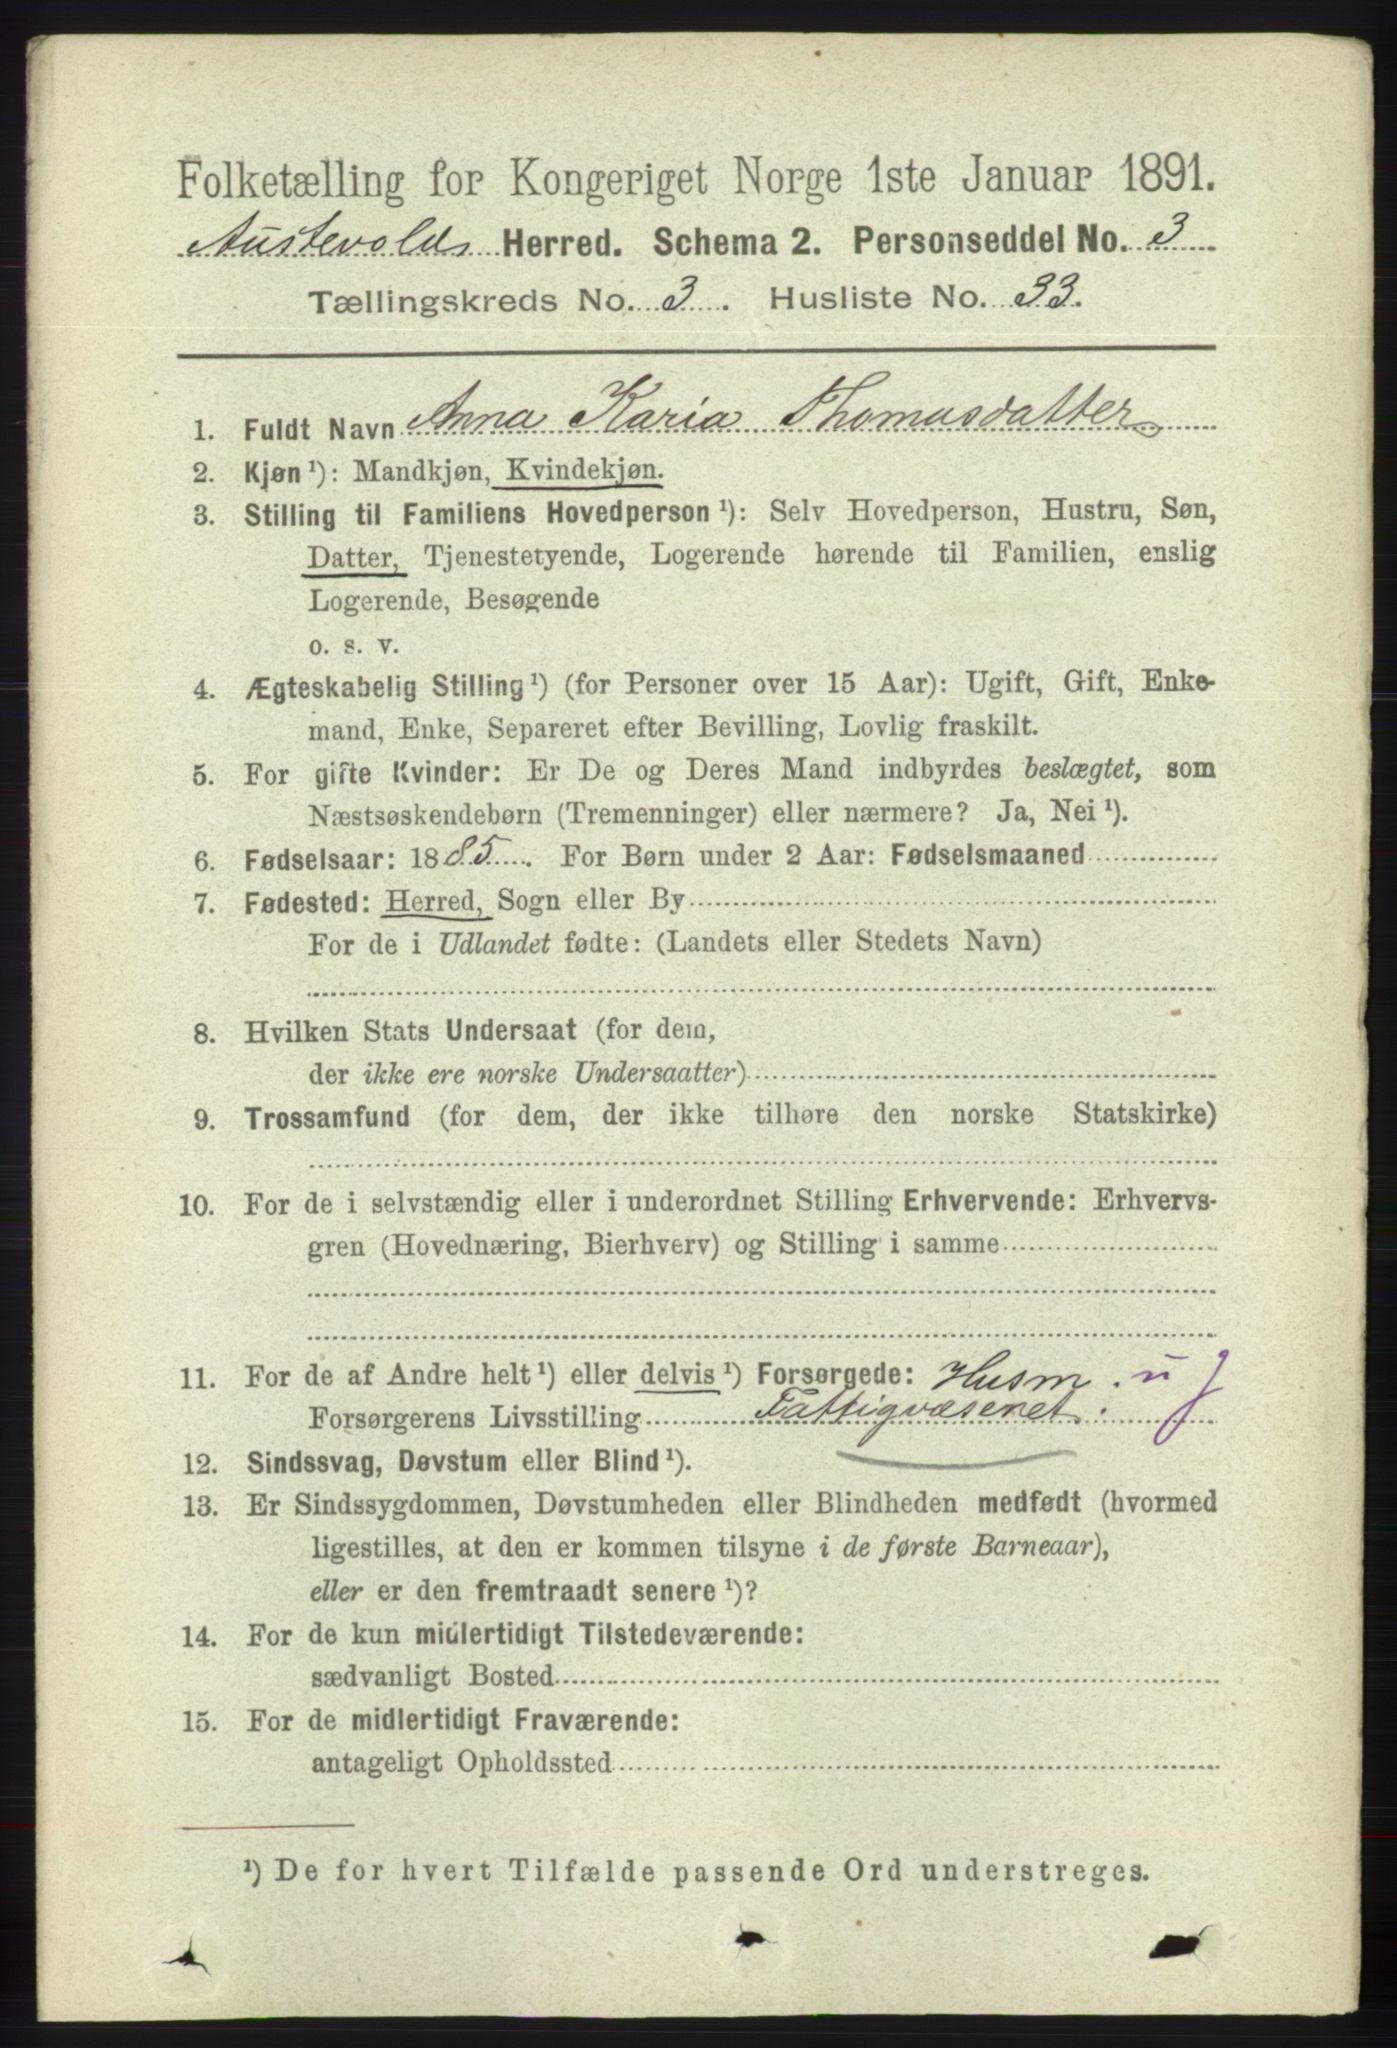 Folketælling for Kongeriget Norge 1ste Januar 1891.
Austevolds Herred. Schema 2. Personseddel No. 3
Tællingskreds No. 3. Husliste No. 33.
1. Fuldt Navn Anna Karia Thomasdatter
2. Kjøn ¹): Mandkjøn, Kvindekjøn.
3. Stilling til Familiens Hovedperson ¹): Selv Hovedperson, Hustru, Søn,
Datter, Tjenestetyende, Logerende hørende til Familien, enslig
Logerende, Besøgende
o. s. v.
4. Ægteskabelig Stilling ¹) (for Personer over 15 Aar): Ugift, Gift, Enke-
mand, Enke, Separeret efter Bevilling, Lovlig fraskilt.
5. For gifte Kvinder: Er De og Deres Mand indbyrdes beslægtet, som
Næstsøskendebørn (Tremenninger) eller nærmere? Ja, Nei ¹).
6. Fødselsaar: 1885. For Børn under 2 Aar: Fødselsmaaned
7. Fødested: Herred, Sogn eller By
For de i Udlandet fødte: (Landets eller Stedets Navn)
8. Hvilken Stats Undersaat (for dem,
der ikke ere norske Undersaatter)
9. Trossamfund (for dem, der ikke tilhøre den norske Statskirke)
10. For de i selvstændig eller i underordnet Stilling Erhvervende: Erhvervs-
gren (Hovednæring, Bierhverv) og Stilling i samme
11. For de af Andre helt ¹) eller delvis ¹) Forsørgede: Husm. u
Forsørgerens Livsstilling Fattigvæsenet.
12. Sindssvag, Døvstum eller Blind ¹).
13. Er Sindssygdommen, Døvstumheden eller Blindheden medfødt (hvormed
ligestilles, at den er kommen tilsyne i de første Barneaar),
eller er den fremtraadt senere ¹)?
14. For de kun midlertidigt Tilstedeværende:
sædvanligt Bosted
15. For de midlertidigt Fraværende:
antageligt Opholdssted
¹) De for hvert Tilfælde passende Ord understreges.